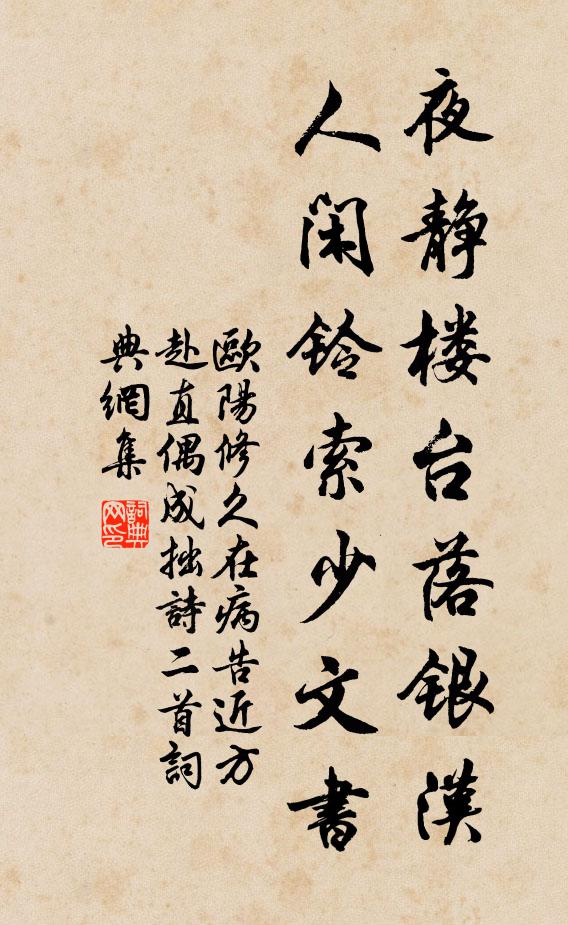 夜静楼台落银漢
人闲铃索少文書
歐陽修久在病告近方
赴直偶成拙詩二首詞
典網集
詞典网印